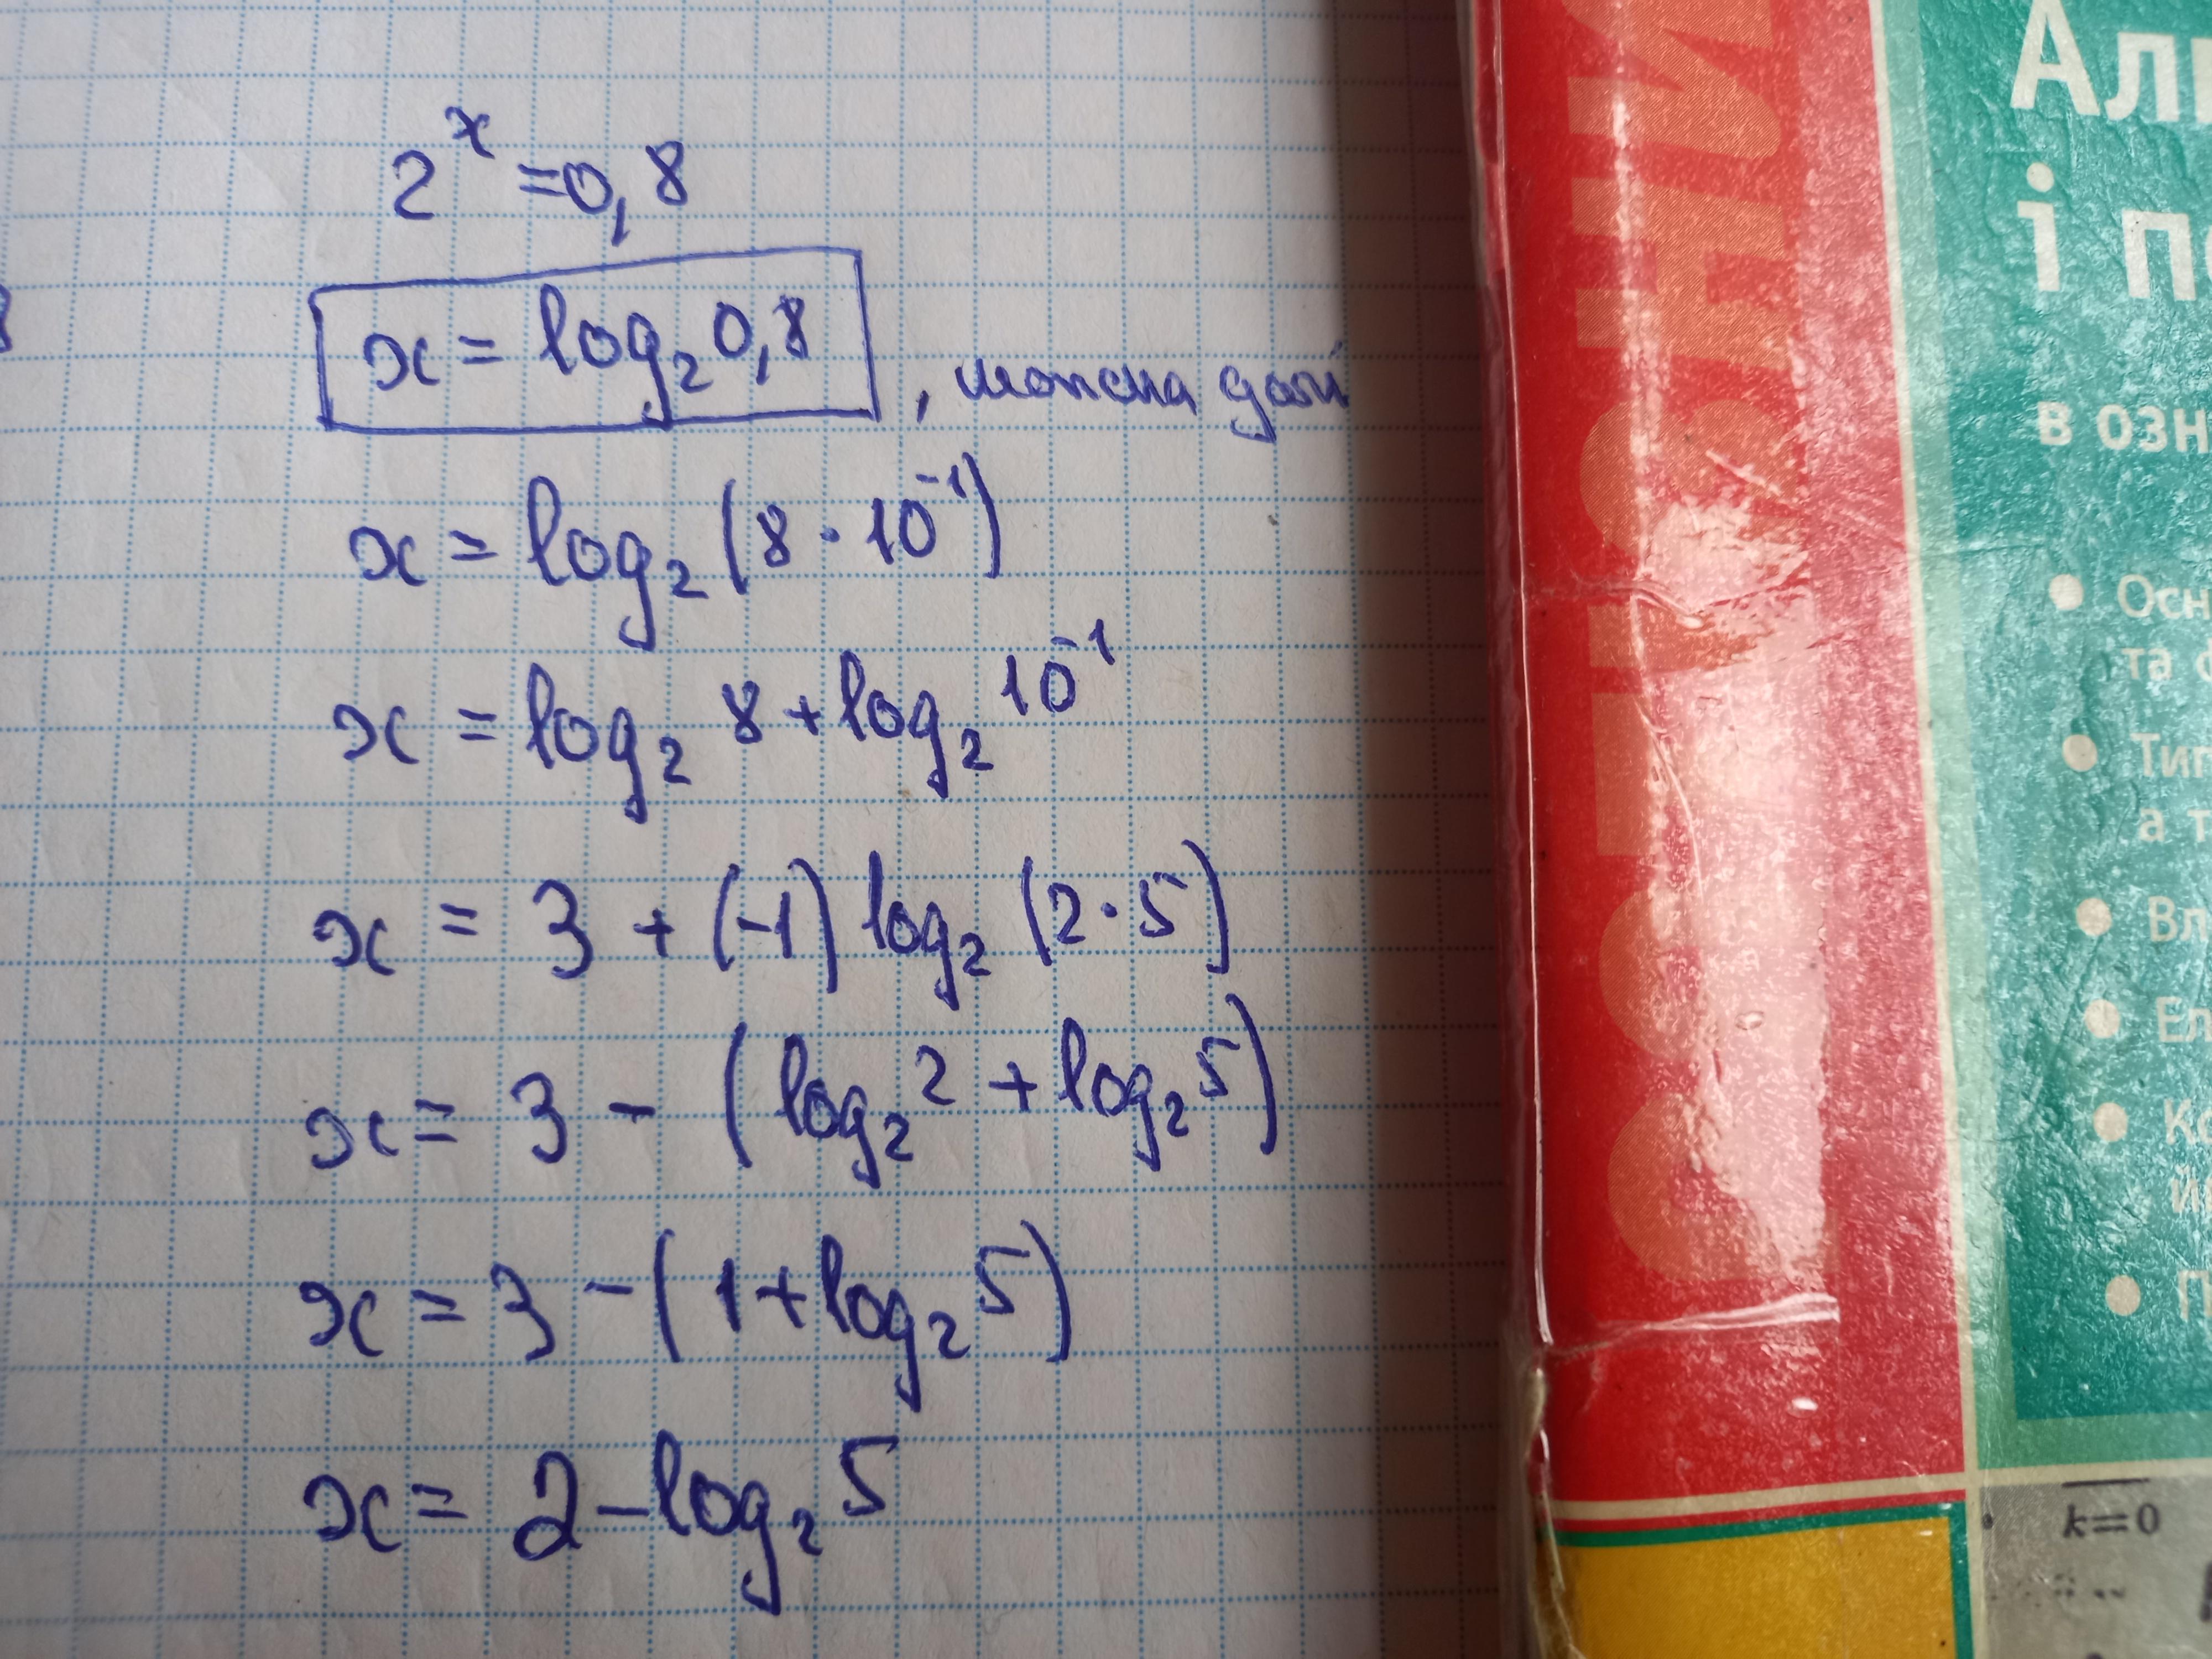 2^x = 0,8
x = log₂ 0,8 , можна далі
x = log₂ (8 · 10⁻¹)
x = log₂ 8 + log₂ 10⁻¹
x = 3 + (-1) log₂ (2 · 5)
x = 3 - (log₂ 2 + log₂ 5)
x = 3 - (1 + log₂ 5)
x = 2 - log₂ 5
Ал
і п
в озн
Осн
та ф
Тип
а т
Вл
Ел
Ко
й
П
k=0